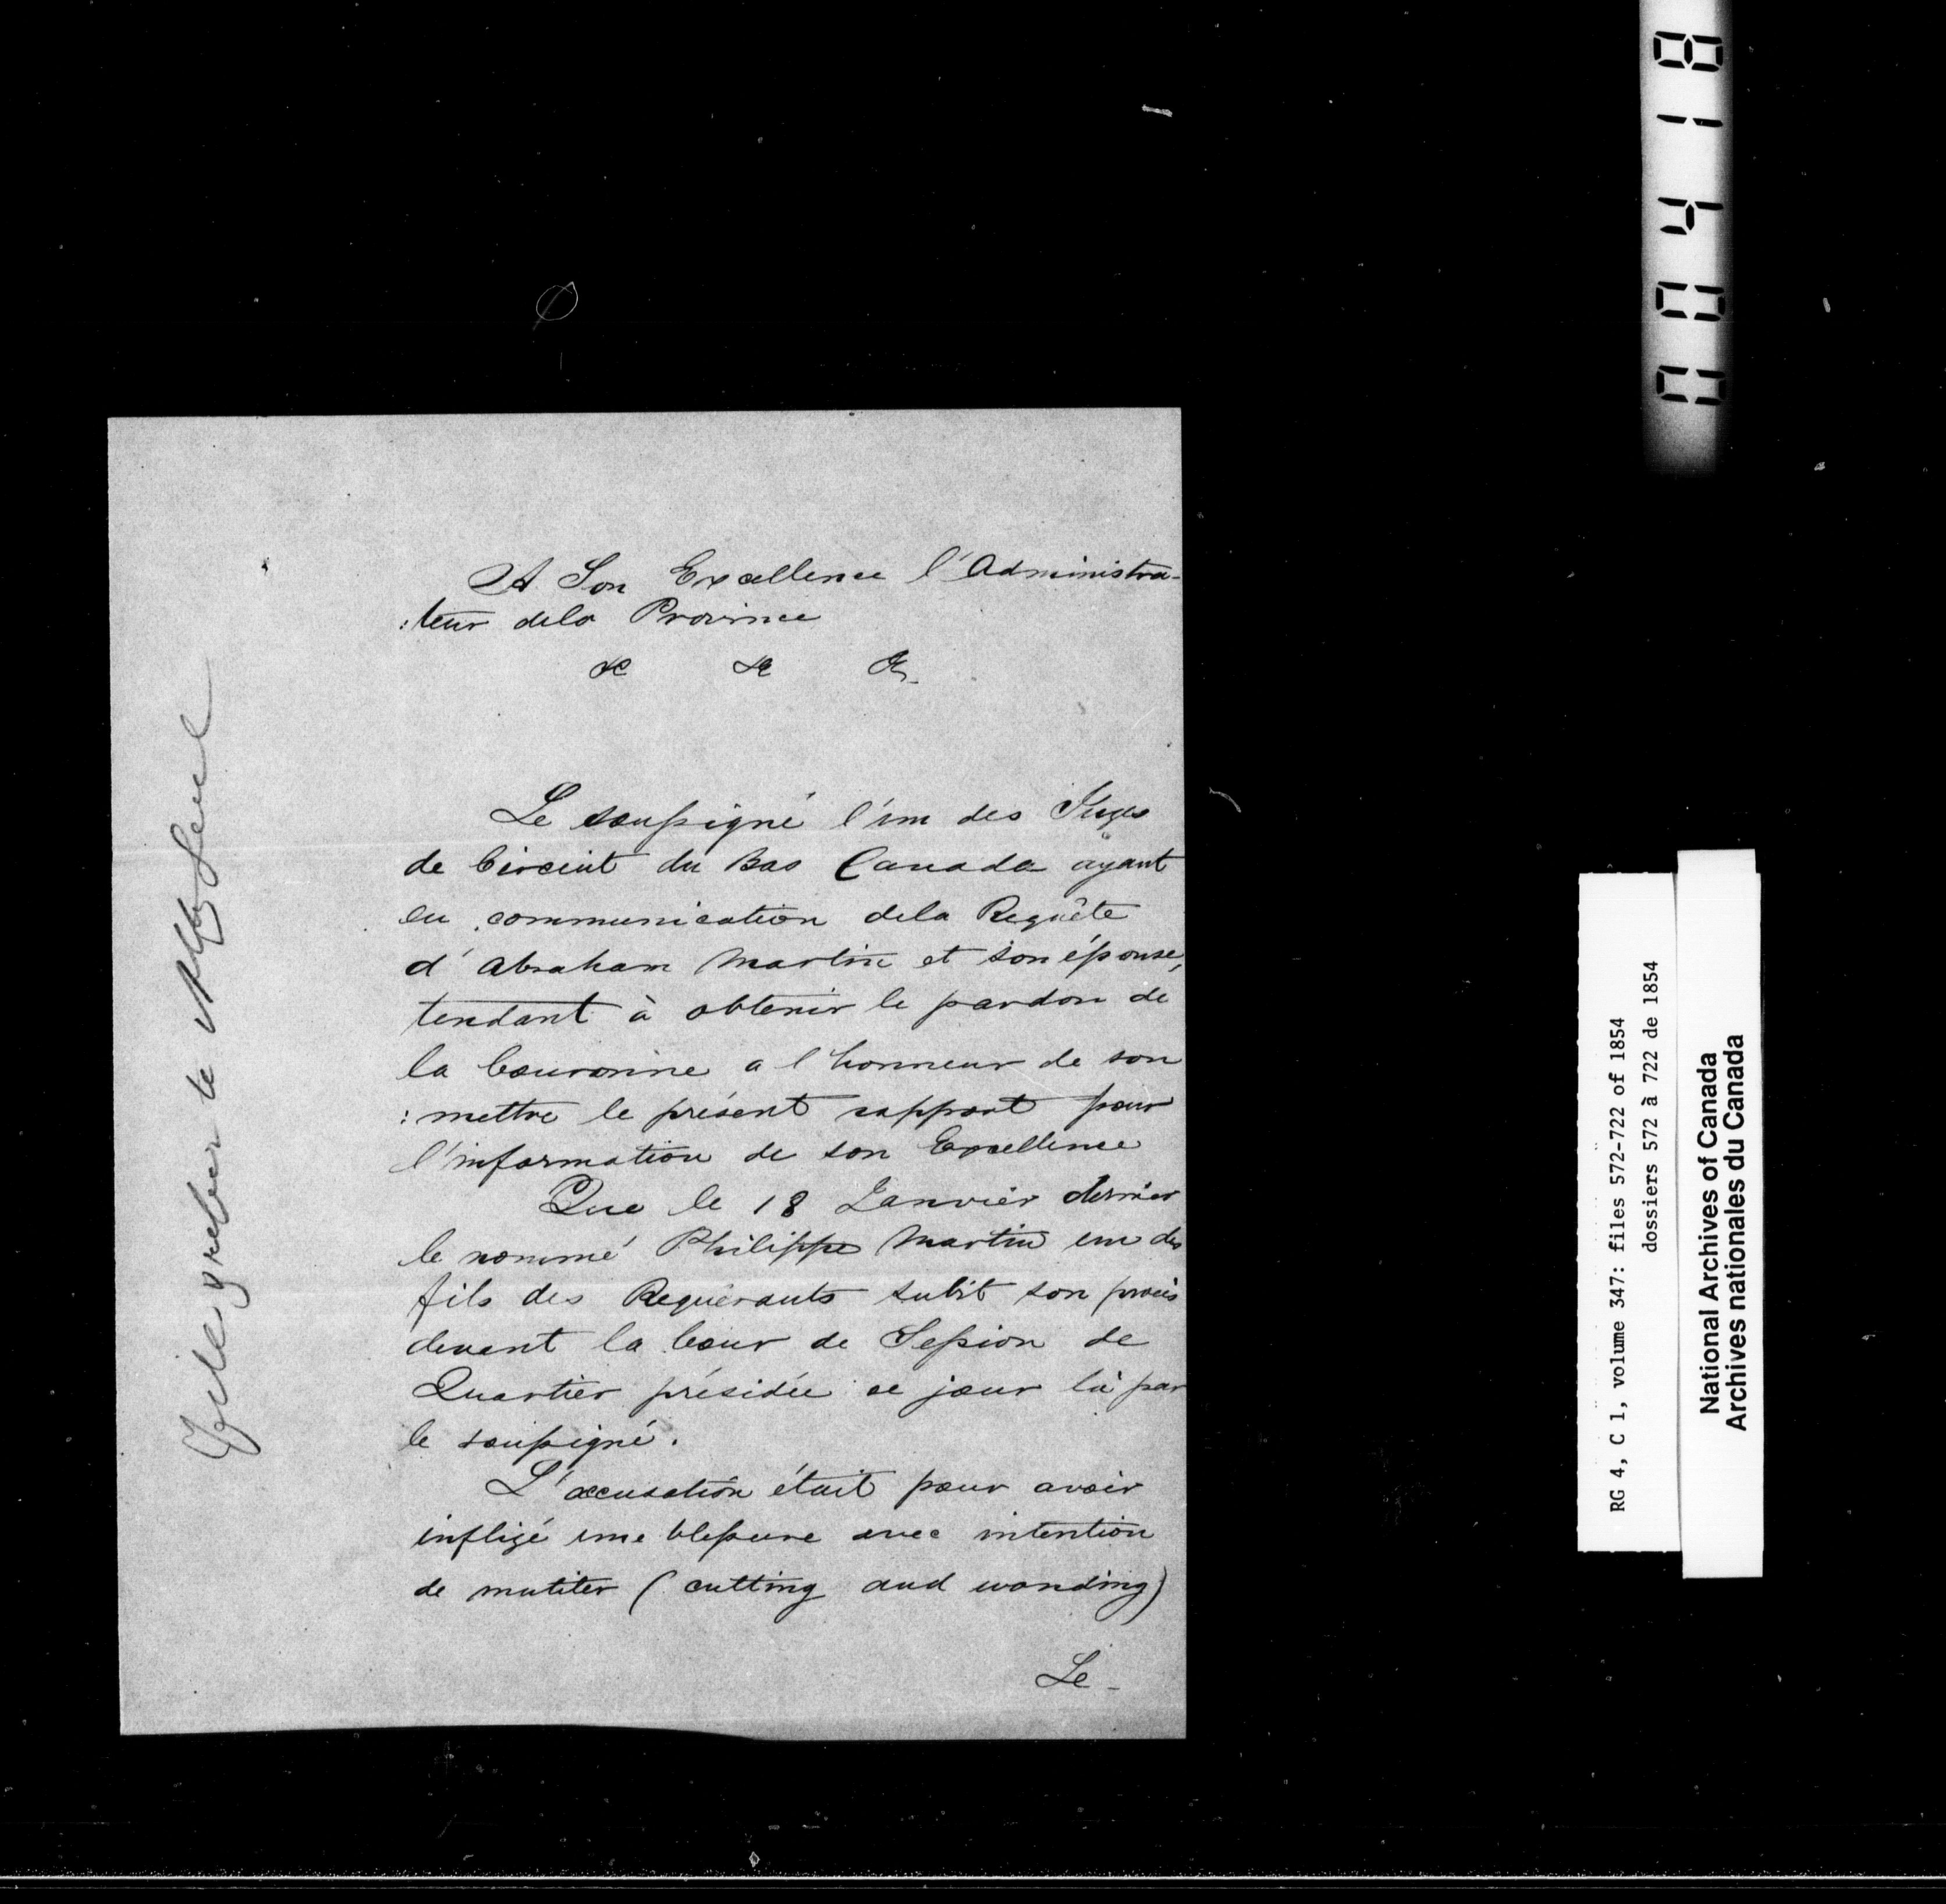 A Son Excellence l'Administra-
:teur dela Province
&c &c &c
Le soussigné l'un des Juges
de Circuit du Bas Canada ayant
eu communication dela Requête
d'Abraham Martin et son épouse,
tendant à obtenir le pardon de
la Couronne a l'honneur de sou
:mettre le présent rapport pour
l'information de son Excellence
Que le 18 Janvier dernier
le nommé Philippe Martin un des
fils des Requérants subit son procès
devant la Cour de Session de
Quartier présidée ce jour là par
le soussigné.
L'accusation était pour avoir
infligé une blessure avec intention
de mutiler (cutting and wonding)
Le -
00418
RG 4, C 1, volume 347: files 572-722 of 1854
dossiers 572 à 722 de 1854
National Archives of Canada
Archives nationales du Canada